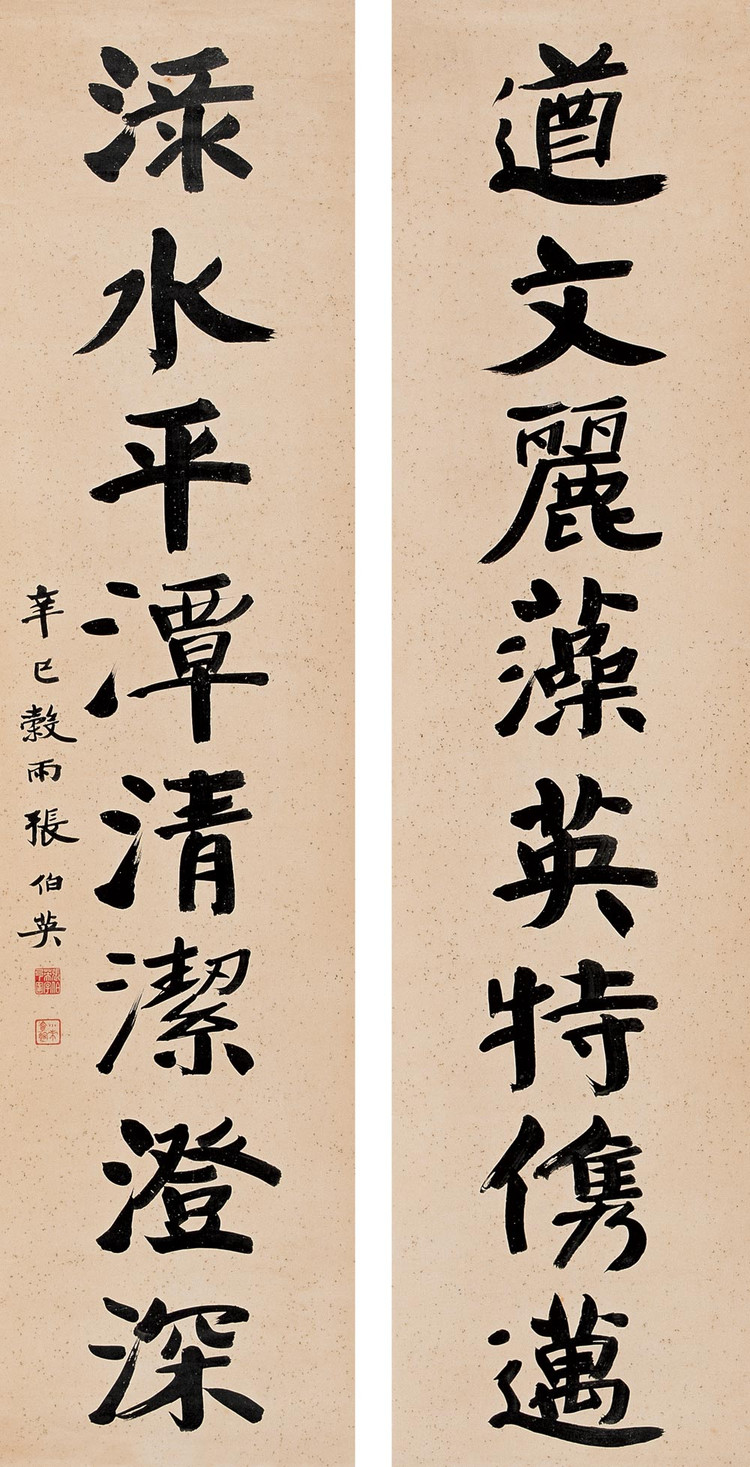 遒文麗藻英特儁邁
淥水平潭清潔澄深
辛巳穀雨張伯英